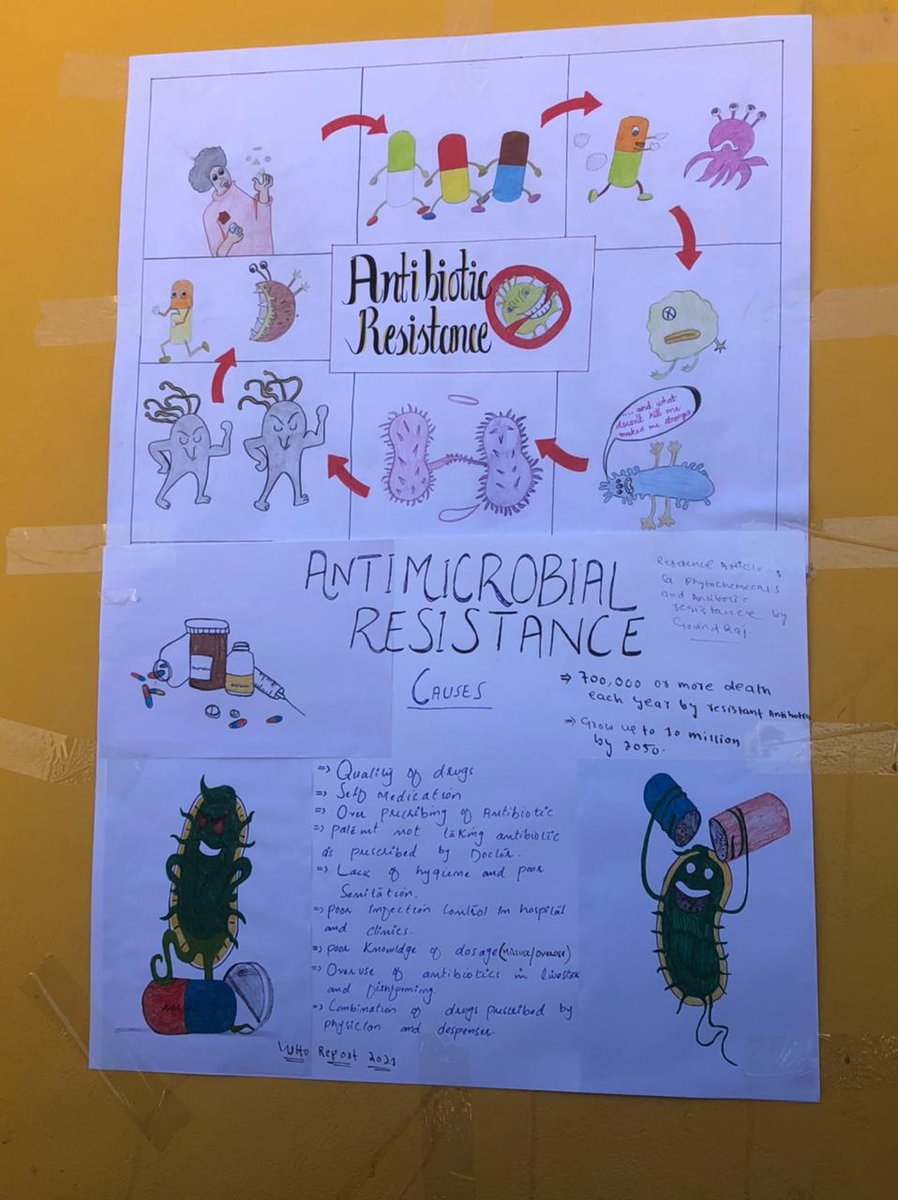 Antibiotic
Resistance
.... and what
doesn't kill me
makes me stronger
ANTIMICROBIAL
RESISTANCE
and Antibiotic
resistance by
Govind Raj.
CAUSES
⇒ 700,000 or more death
each year by resistant
⇒ Grow up to 10 million
by 2050.
⇒ Quality of drugs
⇒ Self Medication
⇒ Over prescribing of Antibiotic
⇒ not taking antibiotic
as prescribed by Doctor.
⇒ Lack of hygiene and poor
⇒ poor infection control in hospital
and clinics.
⇒ poor knowledge of dosage (misuse/overuse)
⇒ Over use of antibiotics in
and
⇒ Combination of drugs prescribed by
and
WHO Report 2021